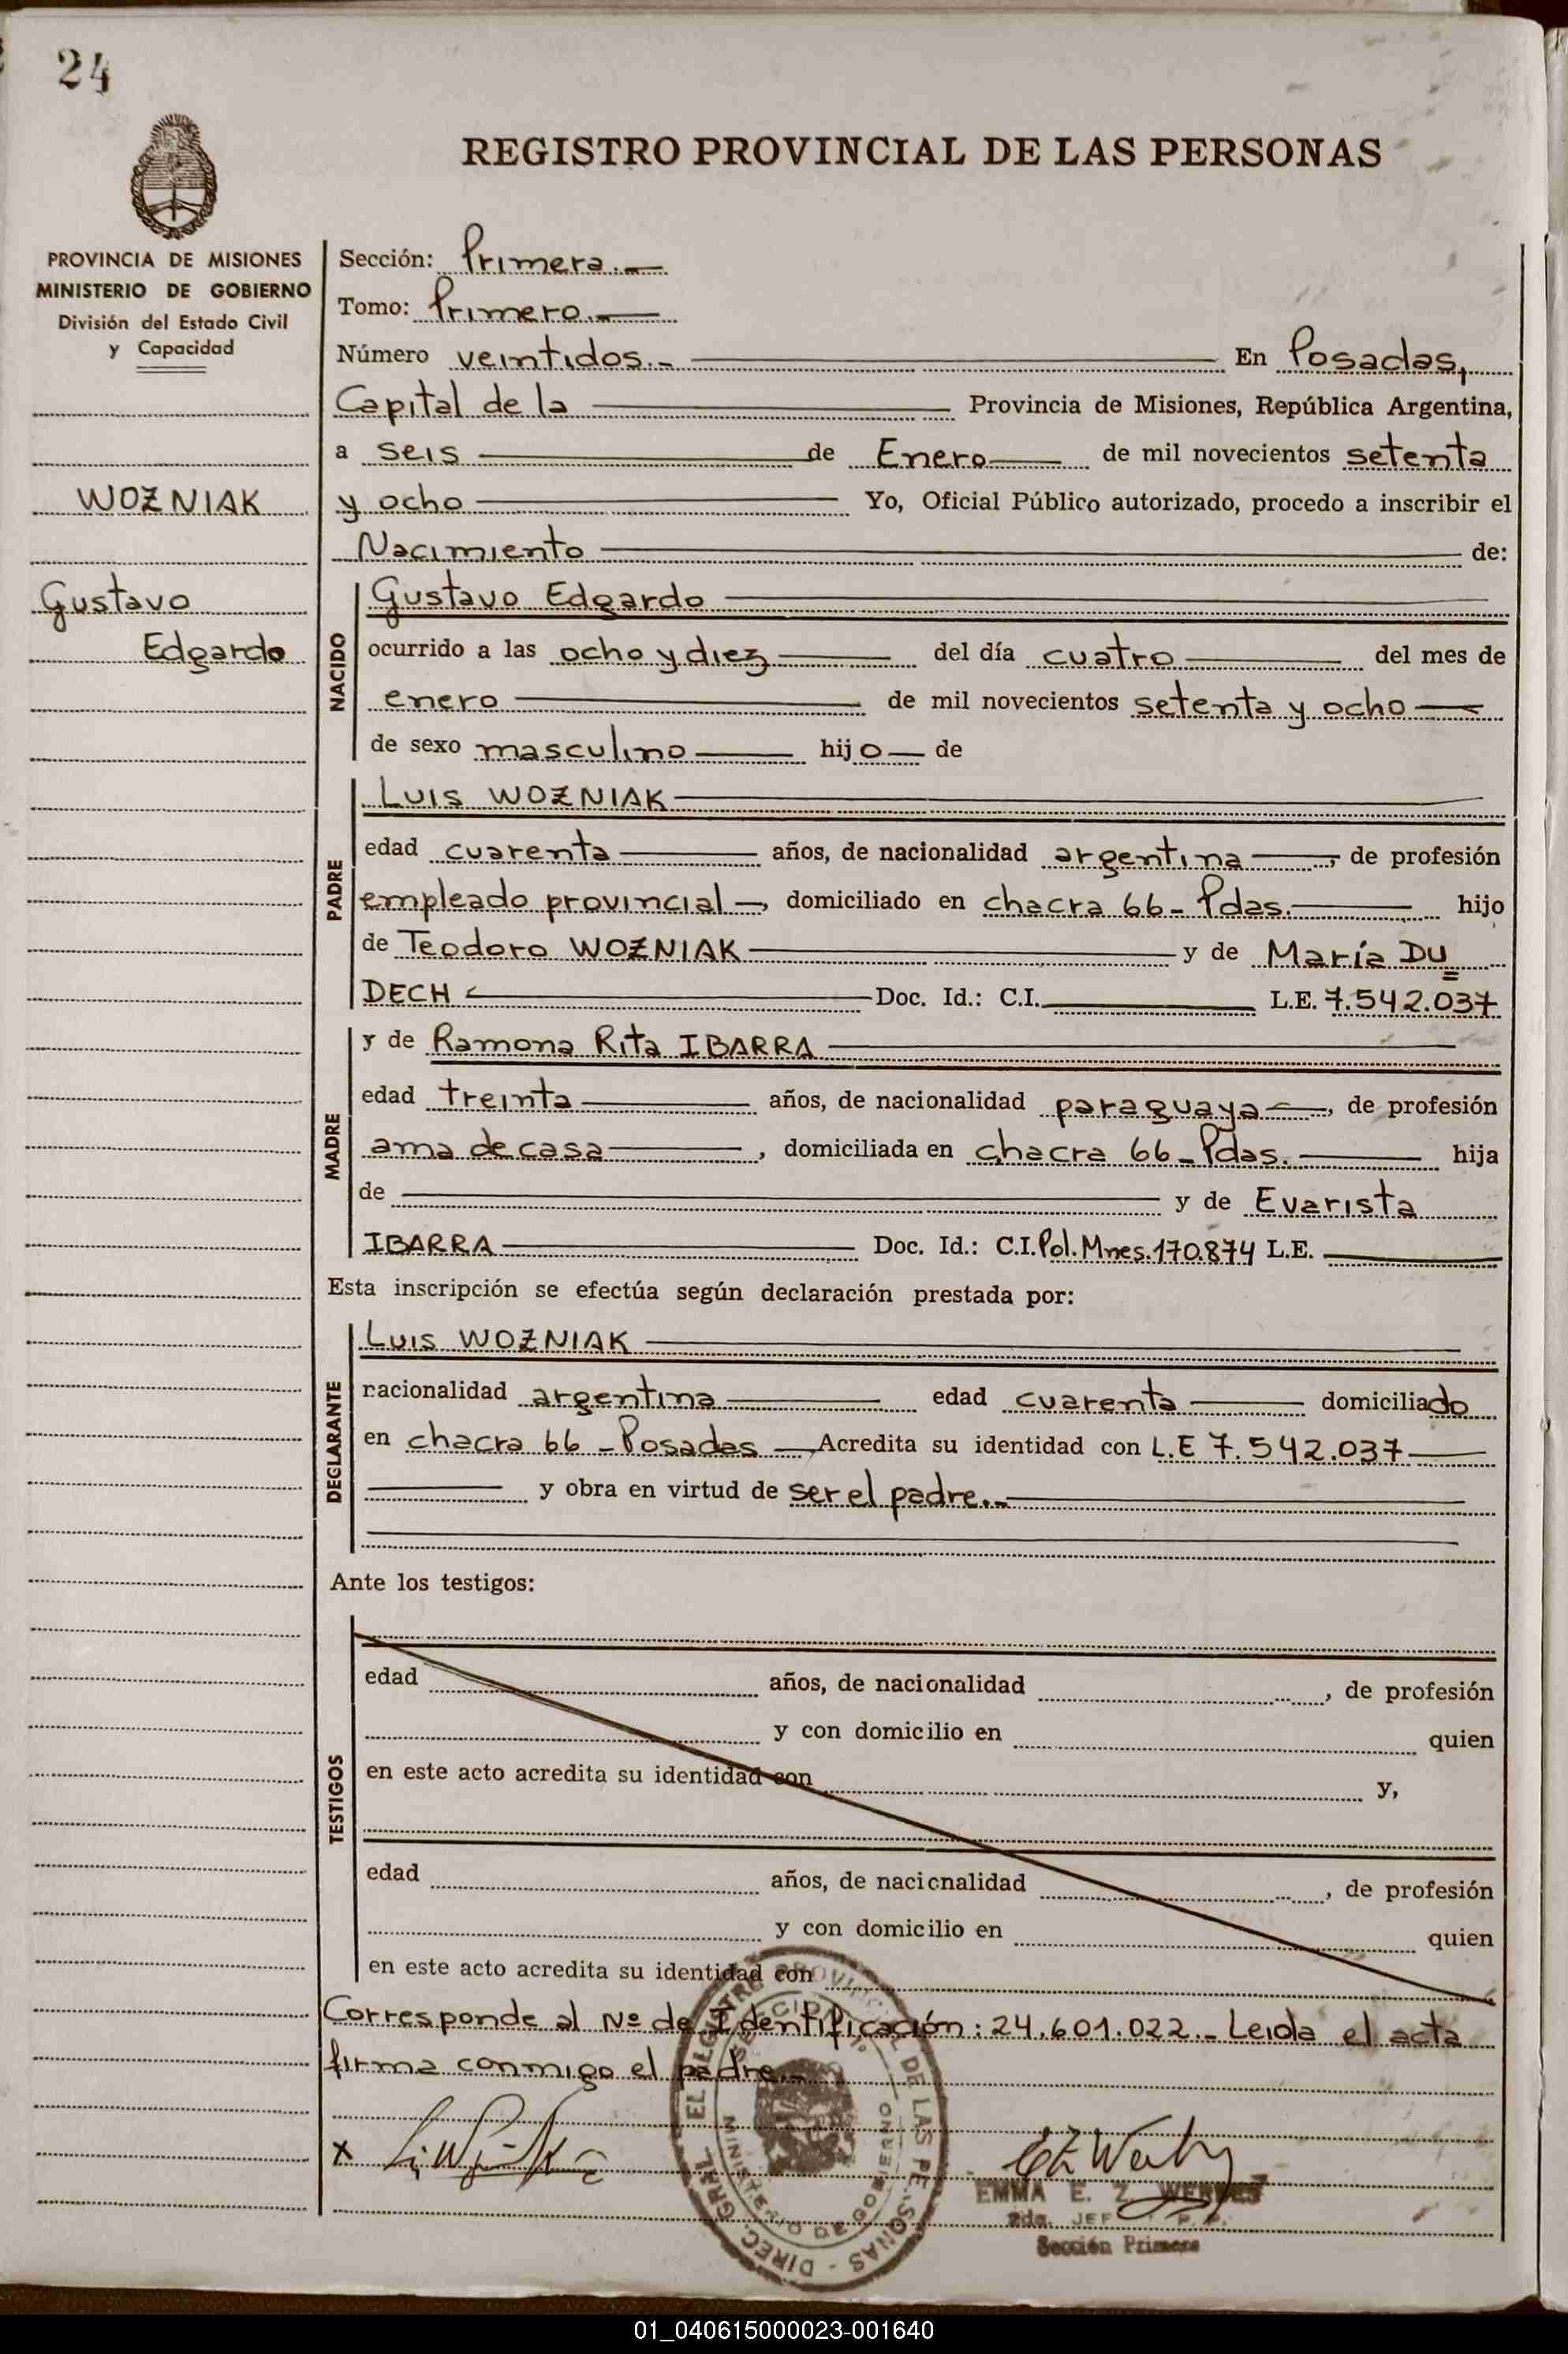 24
REGISTRO PROVINCIAL DE LAS PERSONAS
PROVINCIA DE MISIONES
MINISTERIO DE GOBIERNO
División del Estado Civil
y Capacidad
WOZNIAK
Gustavo
Edgardo
Sección: Primera.-
Tomo: Primero.-
Número veintidos.- En Posadas,
Capital de la Provincia de Misiones, República Argentina,
a seis de Enero de mil novecientos setenta
y ocho Yo, Oficial Público autorizado, procedo a inscribir el
Nacimiento de:
NACIDO
Gustavo Edgardo
ocurrido a las ocho y diez del día cuatro del mes de
enero de mil novecientos setenta y ocho
de sexo masculino hijo de
PADRE
Luis WOZNIAK
edad cuarenta años, de nacionalidad argentina, de profesión
empleado provincial, domiciliado en chacra 66- Pdas. hijo
de Teodoro WOZNIAK y de María DU=
DECH Doc. Id.: C.I. L.E. 7.542.037
MADRE
y de Ramona Rita IBARRA
edad treinta años, de nacionalidad paraguaya, de profesión
ama de casa, domiciliada en chacra 66- Pdas. hija
de y de Evarista
IBARRA Doc. Id.: C.I. Pol. Mnes. 170.874 L.E.
Esta inscripción se efectúa según declaración prestada por:
DECLARANTE
Luis WOZNIAK
nacionalidad argentina edad cuarenta domiciliado
en chacra 66 - Posadas, Acredita su identidad con L.E 7.542.037
y obra en virtud de ser el padre.-
Ante los testigos:
TESTIGOS
edad años, de nacionalidad , de profesión
y con domicilio en quien
en este acto acredita su identidad con y,
edad años, de nacionalidad , de profesión
y con domicilio en quien
en este acto acredita su identidad con
Corresponde al Nº de Identificación: 24.601.022.- Leida el acta
firma conmigo el padre.-
x
EMMA E. Z.
Sección Primera
MINISTERIO DE GOBIERNO
01_040615000023-001640